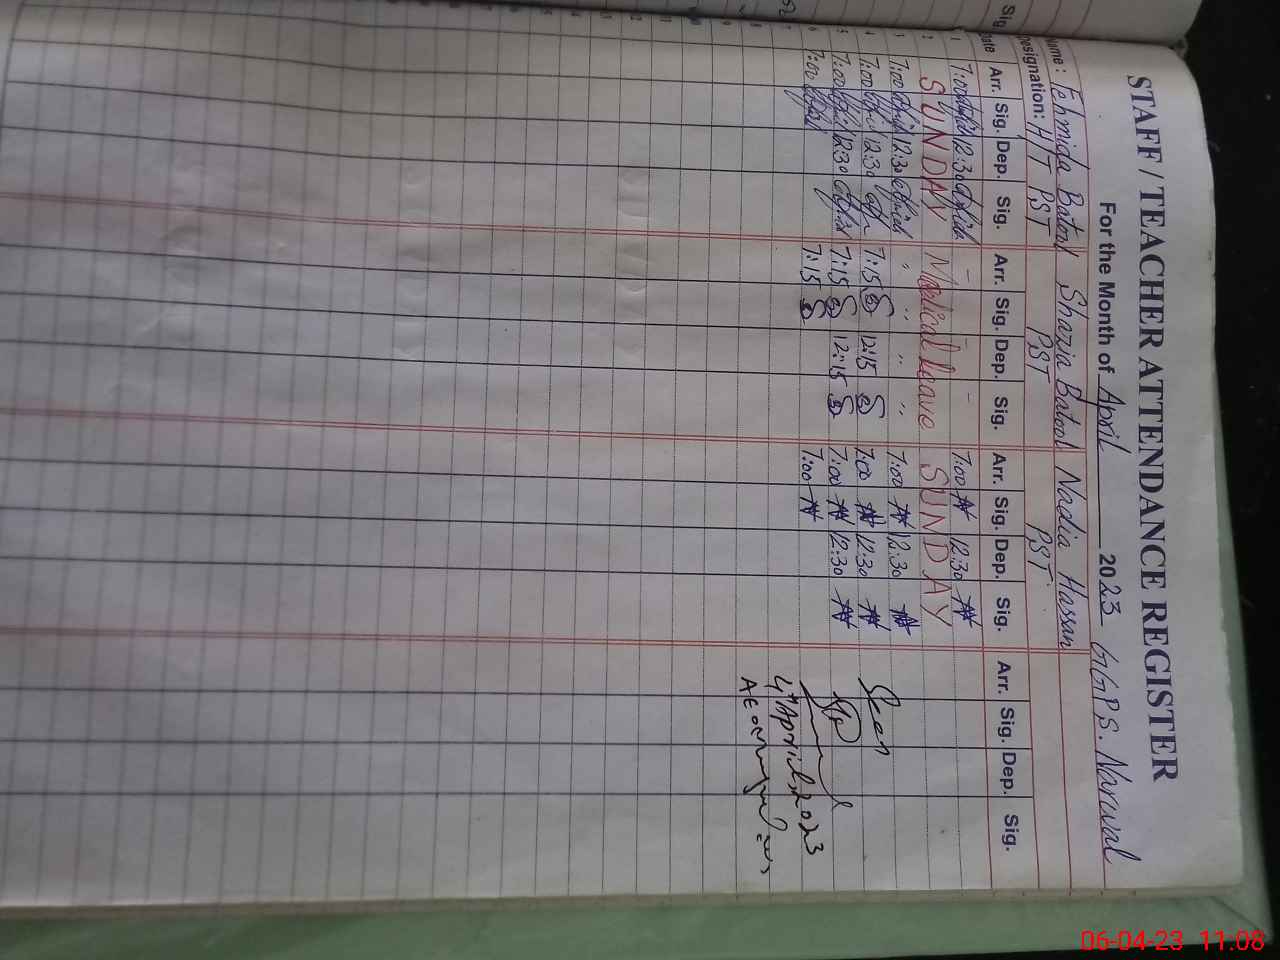 STAFF / TEACHER ATTENDANCE REGISTER
For the Month of April 2023 GGPS. Narowal
Name: Fehmida Batool Shazia Batool Nadia Hassan
Designation: HT PST PST PST
Date Arr. Sig. Dep. Sig. Arr. Sig. Dep. Sig. Arr. Sig. Dep. Sig. Arr. Sig. Dep. Sig.
1 7:00 12:30 - - - 7:00 12:30
2 SUNDAY Medical Leave SUNDAY
3 7:00 12:30 " " " " 7:00 12:30
4 7:00 12:30 7:15 12:15 7:00 12:30 Seen
5 7:00 12:30 7:15 12:15 7:00 12:30
6 7:00 7:15 7:00
7 4th April, 2023
8 AEO
9
10
11
12
13
14
15
Sig.
06-04-23 11:08